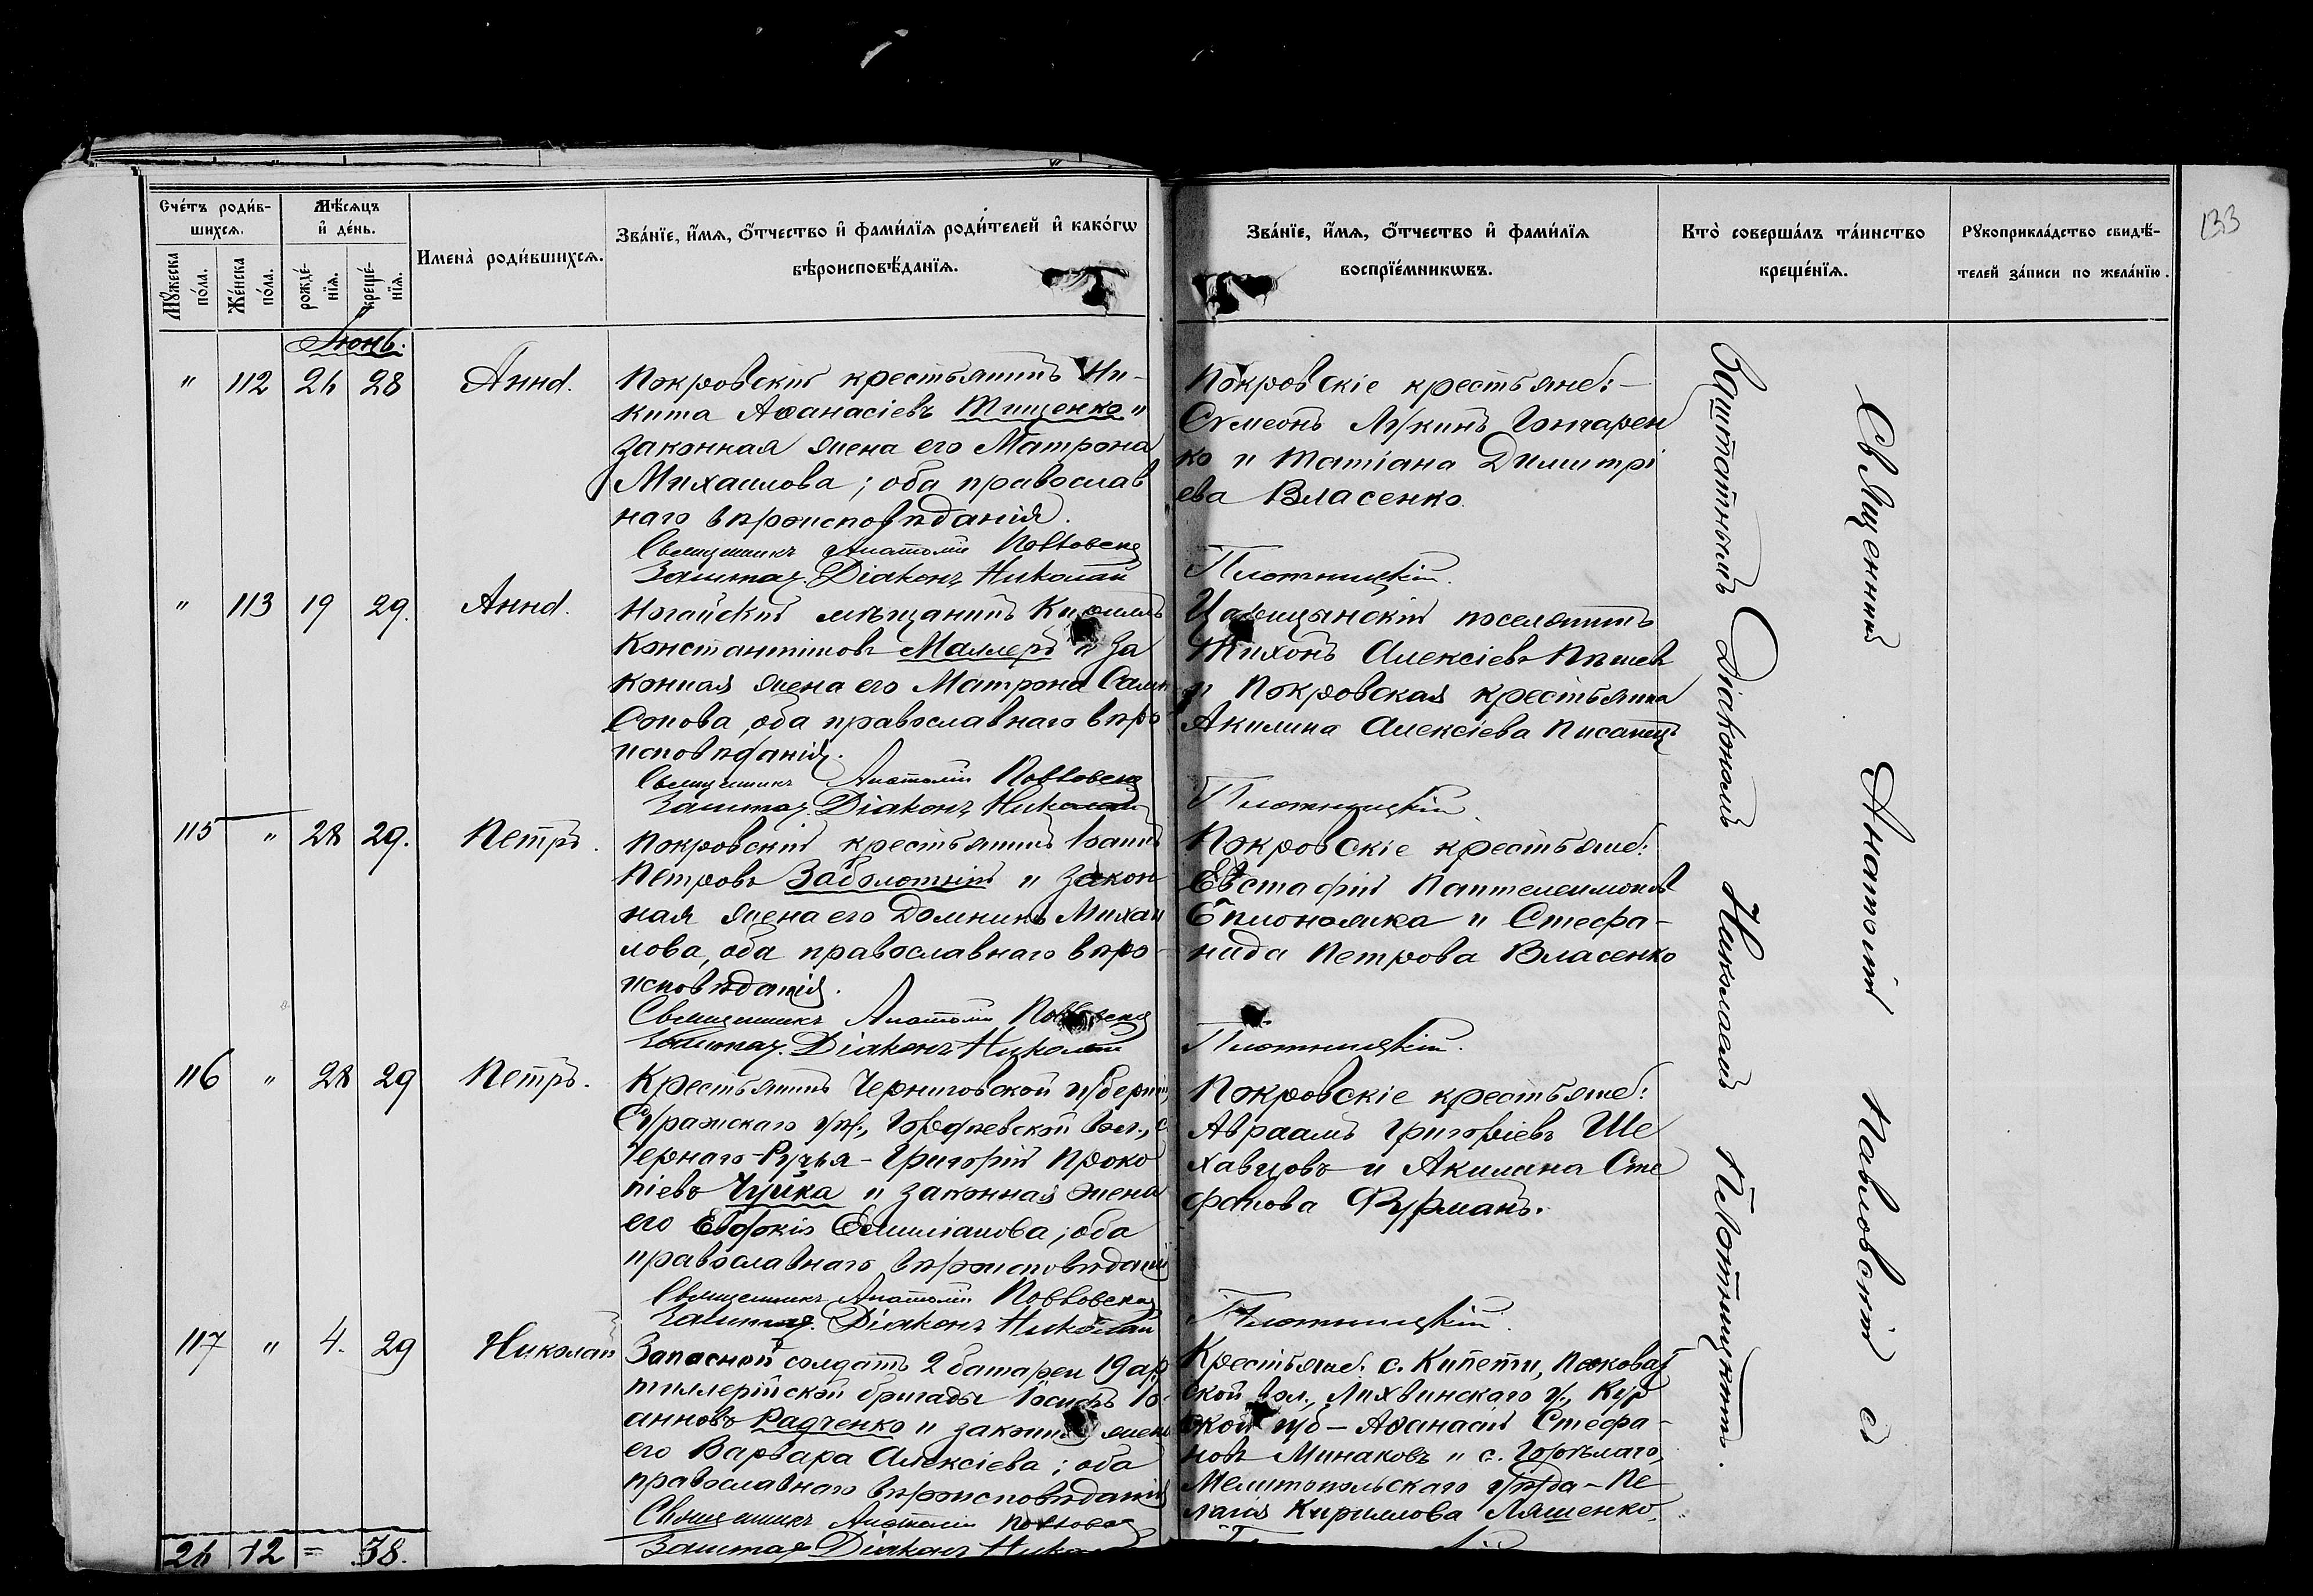 133
Сче́тъ роди́в-
шихся.
Мѣ́сяцъ
и҆ де́нь.
Мꙋ́жеска
по́ла.
Же́нска
по́ла.
рожде́-
нїя.
креще́-
нїя.
Имена̀ роди́вшихся.
Зва́нїе, и҆́мя, ѻ҆́тчество и҆ фами́лїя роди́телей и҆ како́гѡ
вѣроисповѣ́данїя.
Зва́нїе, и҆́мя, ѻ҆́тчество и҆ фами́лїя
воспрїе́мникѡвъ.
Кто̀ соверша́лъ та́инство
креще́нїя.
Рꙋкоприкла́дство свидѣ́-
телей за́писи по жела́нїю.
Іюнь.
" 112 26 28 Анна.
Покровскій крестьянинъ Ни-
кита Аѳанасіевъ Тищенко и
законная жена его Матрона
Михаилова; оба православ
наго вѣроисповѣданія.
Священникъ Анатолій Павловскій
Заштат. Діаконъ Николай
Покровскіе крестьяне:-
Сѵмеонъ Лукинъ Гончарен
ко и Татіана Димитрі
ева Власенко.
Плотницкій.
" 113 19 29. Анна.
Ногайскій мѣщанинъ Кириллъ
Константиновъ Маллеръ и за
конная жена его Матрона Сам
сонова, оба православнаго вѣро
исповѣданія.
Священникъ Анатолій Павловскій
Заштат. Діаконъ Николай
поселянинъ
Тихонъ Алексіевъ
и Покровская крестьянка
Акилина Алексіева Писанец
Плотницкій.
115 " 28 29. Петръ.
Покровскій крестьянинъ Іоаннъ
Петровъ Заболотній и закон
ная жена его Домникія Михаи
лова, оба православнаго вѣро-
исповѣданія.
Священникъ Анатолій Павловскій
Заштат. Діаконъ Николай
Покровскіе крестьяне:
Евстафій Пантелеимоновъ
и Стефа-
нида Петрова Власенко
Плотницкій.
116 " 28 29 Петръ.
Крестьянинъ Черниговской губерніи,
Суражскаго уѣз., вол., с.
Чернаго-Ручья - Григорій Проко
піевъ Чуйка и законная жена
его Евдокія Емиліанова; оба
православнаго вѣроисповѣданія
Священникъ Анатолій Павловскій
Заштат. Діаконъ Николай
Покровскіе крестьяне:
Авраамъ Григоріевъ Ше
хавцовъ и Акилина Сте
фанова Фурманъ.
Плотницкій.
117 " 4. 29 Николай
Запасной солдатъ 2 батареи 19 ар
тиллерійской бригады Іосифъ Іо-
анновъ Радченко и законная жена
его Варвара Алексіева; оба
православнаго вѣроисповѣданія
Священникъ Анатолій Павловскій
Заштат. Діаконъ Николай
Крестьяне: с. Кипети,
ской вол., Лихвинскаго у.,
ской губ - Аѳанасій Стефа-
новъ Минаковъ и с. Горѣлаго,
Мелитопольскаго уѣзда - Пе
лагія Кириллова Ляшенко.
26 12 = 38.
Священникъ Анатолій Павловскій съ
Заштатнымъ Діакономъ Николаемъ Плотницкимъ.